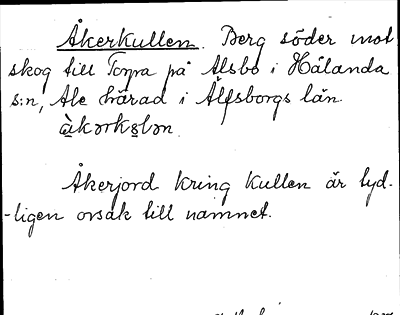 Åkerkullen. Berg söder mot
skog till Torpa på Älsbo i Hålanda
s:n, Ale härad i Älfsborgs län.
åkərkslən.
Åkerjord kring kullen är tyd-
-ligen orsak till namnet.